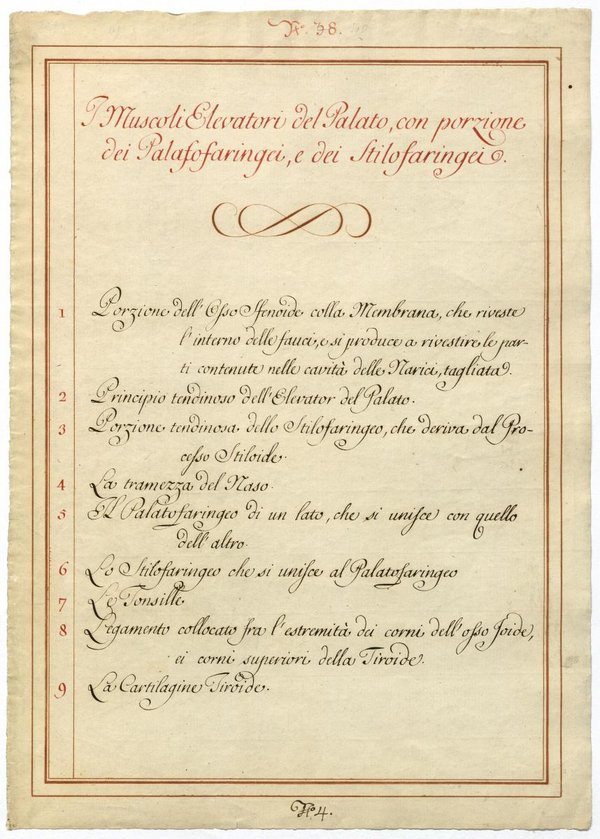 N.º 38.
I Muscoli Elevatori del Palato, con porzione
dei Palatofaringei, e dei Stilofaringei.
1 Porzione dell'Osso Sfenoide colla Membrana, che riveste
l'interno delle fauci, e si produce a rivestire le par-
ti contenute nelle cavità delle Narici, tagliata.
2 Principio tendinoso dell'Elevator del Palato.
3 Porzione tendinosa dello Stilofaringeo, che deriva dal Pro-
ceſso Stiloide.
4 La tramezza del Naso.
5 Il Palatofaringeo di un lato, che si uniſce con quello
dell'altro.
6 Lo Stilofaringeo che si uniſce al Palatofaringeo
7 Le Tonsille
8 Legamento collocato fra l'estremità dei corni dell'oſso Joide,
ei corni superiori della Tiroide.
9 La Cartilagine Tiroide.
N.º 4.